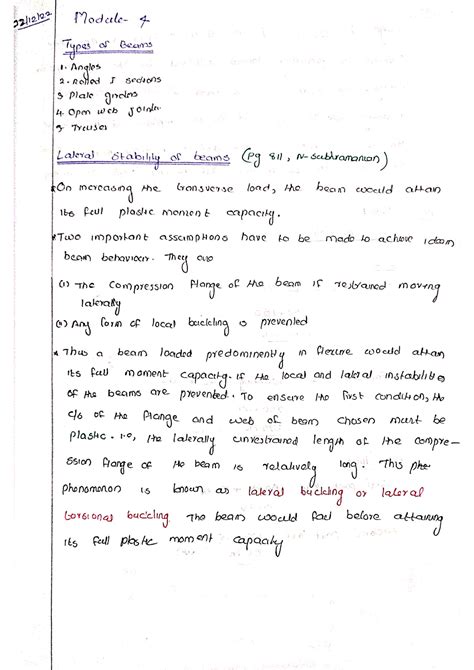 22/12/22
Module- 4
Types of Beams
1. Angles
2. Rolled I sections
3 Plate girders
4. Open web joinder
5 Trusses
Lateral Stability of beams (Pg 811, N-Subhramanian)
* On increasing the transverse load, the beam would attain
its full plastic moment capacity.
* Two important assumptions have to be made to achieve ideam
beam behaviour. They are
(1) The compression flange of the beam if restrained moving
laterally
(2) Any form of local buckling is prevented
* Thus a beam loaded predominently in flexure would attan
its full moment capacity. if the local and lateral instabilities
of the beams are prevented. To ensure the first condition, the
c/s of the flange and web of beam chosen must be
plastic. i.e, the laterally unrestrained length of the compre-
ssion flange of the beam is relatively long. This phe
phenomonon is known as lateral buckling or lateral
torsional buckling The beam would fail before attaining
its full plastic moment capacity